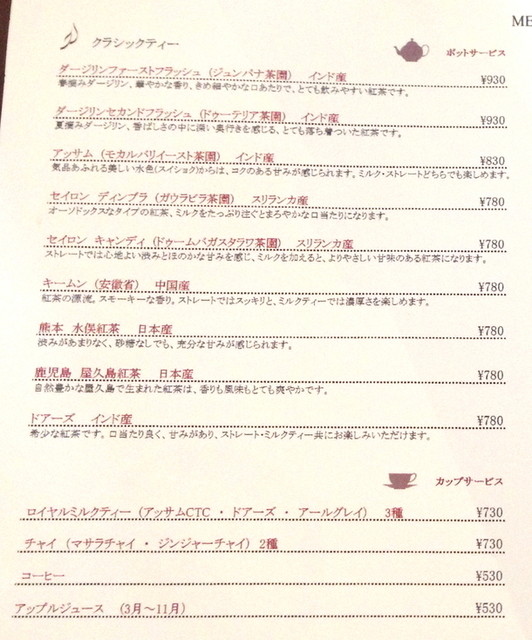 ME
クラシックティー
ポットサービス
ダージリンファーストフラッシュ（ジュンパナ茶園） インド産 ¥930
春摘みダージリン、華やかな香り、きめ細やかな口あたりで、とても飲みやすい紅茶です。
ダージリンセカンドフラッシュ（ドゥーテリア茶園） インド産 ¥930
夏摘みダージリン、香ばしさの中に深い奥行きを感じる、とても落ち着ついた紅茶です。
アッサム（モカルバリイースト茶園） インド産 ¥830
気品あふれる美しい水色(スイショク)からは、コクのある甘みが感じられます。ミルク・ストレートどちらでも楽しめます。
セイロン ディンブラ（ガウラビラ茶園） スリランカ産 ¥780
オーソドックスなタイプの紅茶、ミルクをたっぷり注ぐとまろやかな口当たりになります。
セイロン キャンディ（ドゥームバガスタラワ茶園） スリランカ産 ¥780
ストレートでは心地よい渋みとほのかな甘みを感じ、ミルクを加えると、よりやさしい甘味のある紅茶になります。
キームン（安徽省） 中国産 ¥780
紅茶の源流。スモーキーな香り。ストレートではスッキリと、ミルクティーでは濃厚さを楽しめます。
熊本 水俣紅茶 日本産 ¥780
渋みがあまりなく、砂糖なしでも、充分な甘みが感じられます。
鹿児島 屋久島紅茶 日本産 ¥780
自然豊かな屋久島で生まれた紅茶は、香りも風味もとても爽やかです。
ドアーズ インド産 ¥780
希少な紅茶です。口当たり良く、甘みがあり、ストレート・ミルクティー共にお楽しみいただけます。
カップサービス
ロイヤルミルクティー（アッサムCTC ・ ドアーズ ・ アールグレイ） 3種 ¥730
チャイ（マサラチャイ ・ ジンジャーチャイ）2種 ¥730
コーヒー ¥530
アップルジュース （3月～11月） ¥530